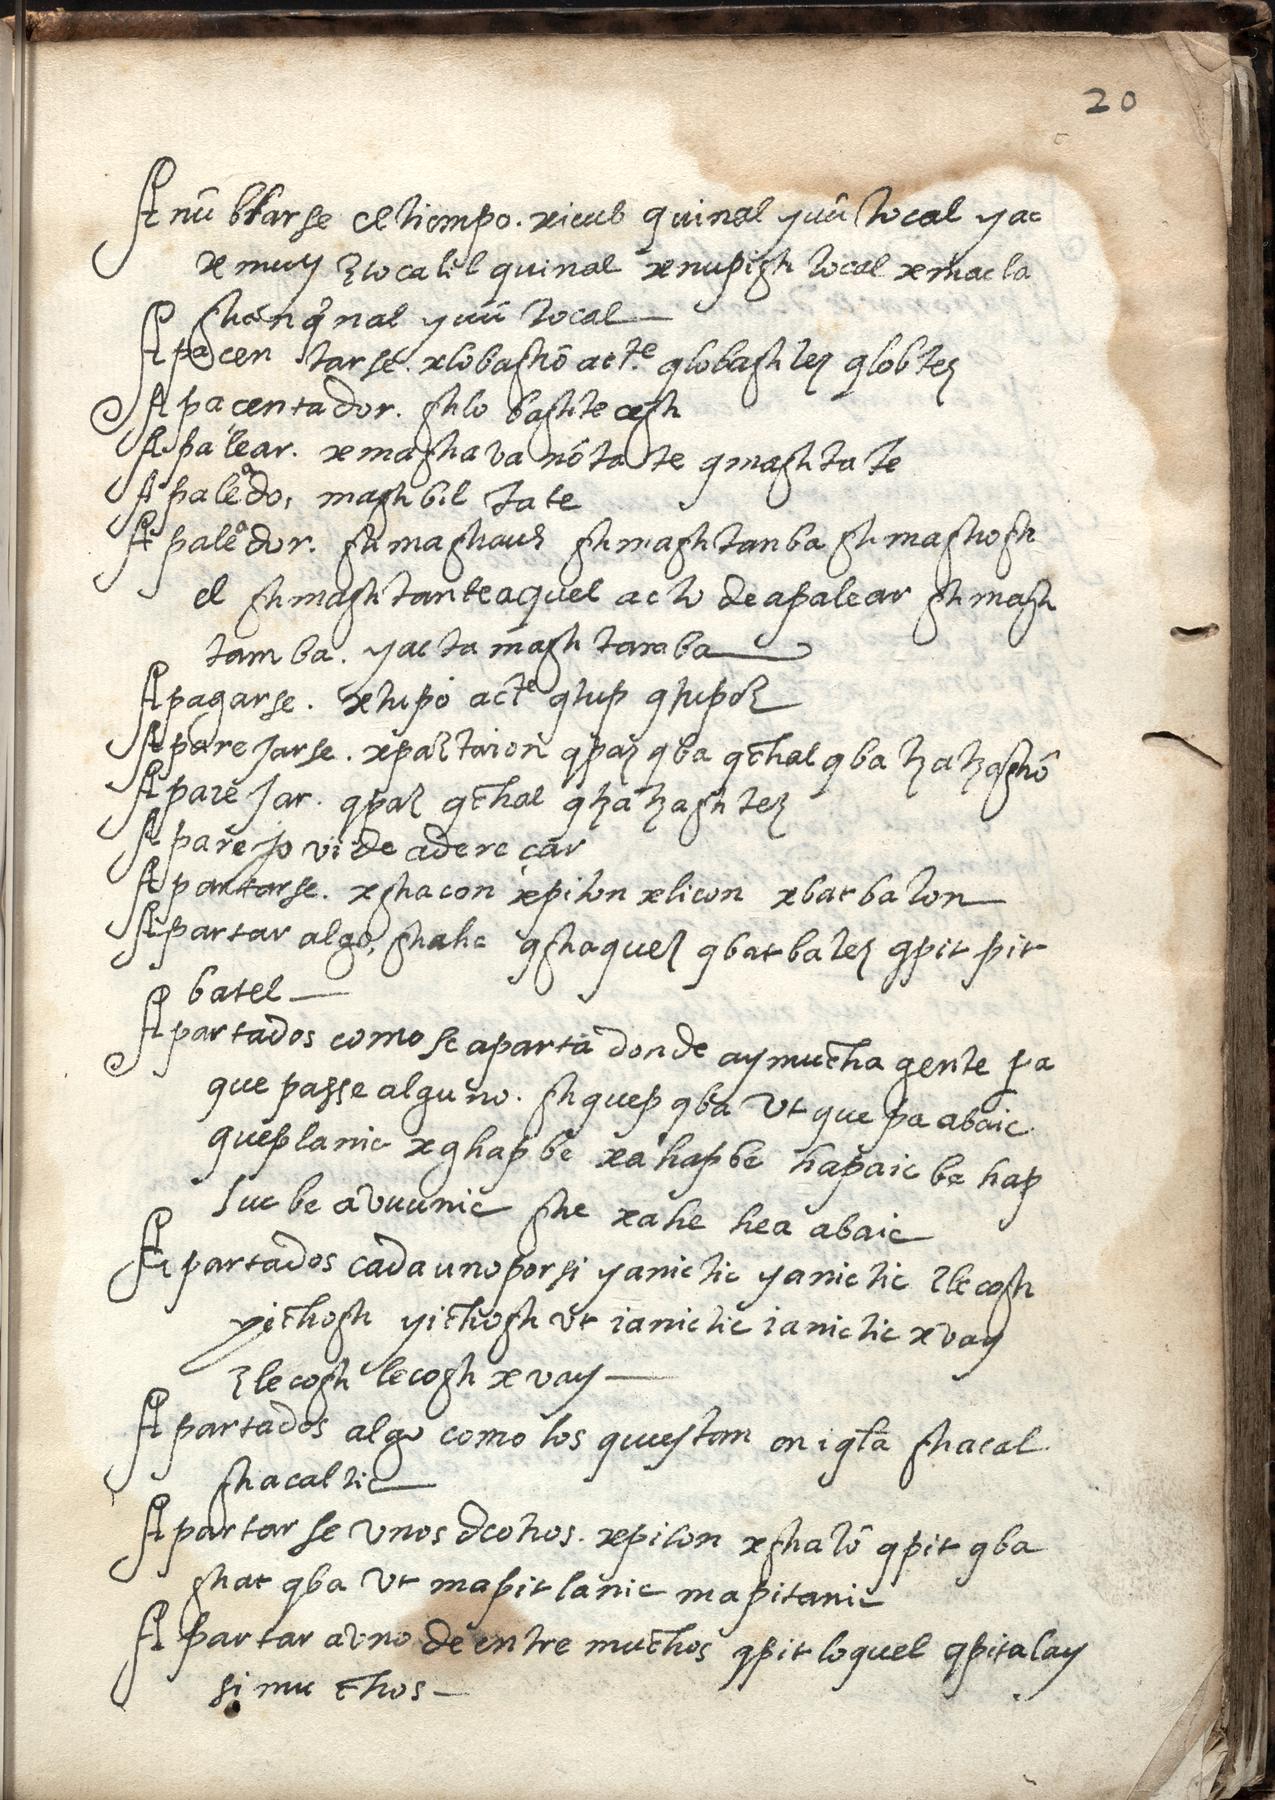 20
Anũblarse el tiempo. xicub quinal yuũ tocal yac
xmuy ztocalil quinal xnupigh tocal xmacla
ghan q̃nal yuũ tocal
Apacentarse. xlobaghõ act.e qlobaghtez qlobtez
Apacentador. ghlobaghtecegh
Apalear. xmaghavanõ ta te qmagh ta te
Apaleado, maghbil ta te
Apaleador. ghmaghauz ghmaghtanba ghmaghogh
el ghmaghtante aquel acto de apalear ghmagh
tamba. yacta magh tamba
Apagarse. xtupò act.e qtup qtupoz
Aparejarse. xpaztaion qpaz qba qchal qba hahaghõ
Aparejar. qpaz qchal qhahaghtez
Aparejo vide adereçar
Apartarse. xghacon xpiton xlicon xbatbaton
Apartar algo, ghahc qghaquez qbatbatez qpit pit
batel
Apartados como se apartã donde ay mucha gente pa
que passe alguno. ghquep qba vt quepa abaic
queplanic xghap be xa hap be hapaic be hap
luc be avuunic ghe xahe hea abaic
Apartados cada uno por si yanictic yanictic zlecogh
yichogh yichogh vt ianictic ianictic xvay
zlecogh lecogh xvay
Apartados algo como los que estan en igl̃a ghacal
ghacaltic
Apartarse vnos de otros. xpiton xghatõ qpit qba
ghat qba vt mapitlanic mapitanic
Apartar a vno de entre muchos qpit loquel qpitalay
si muchos